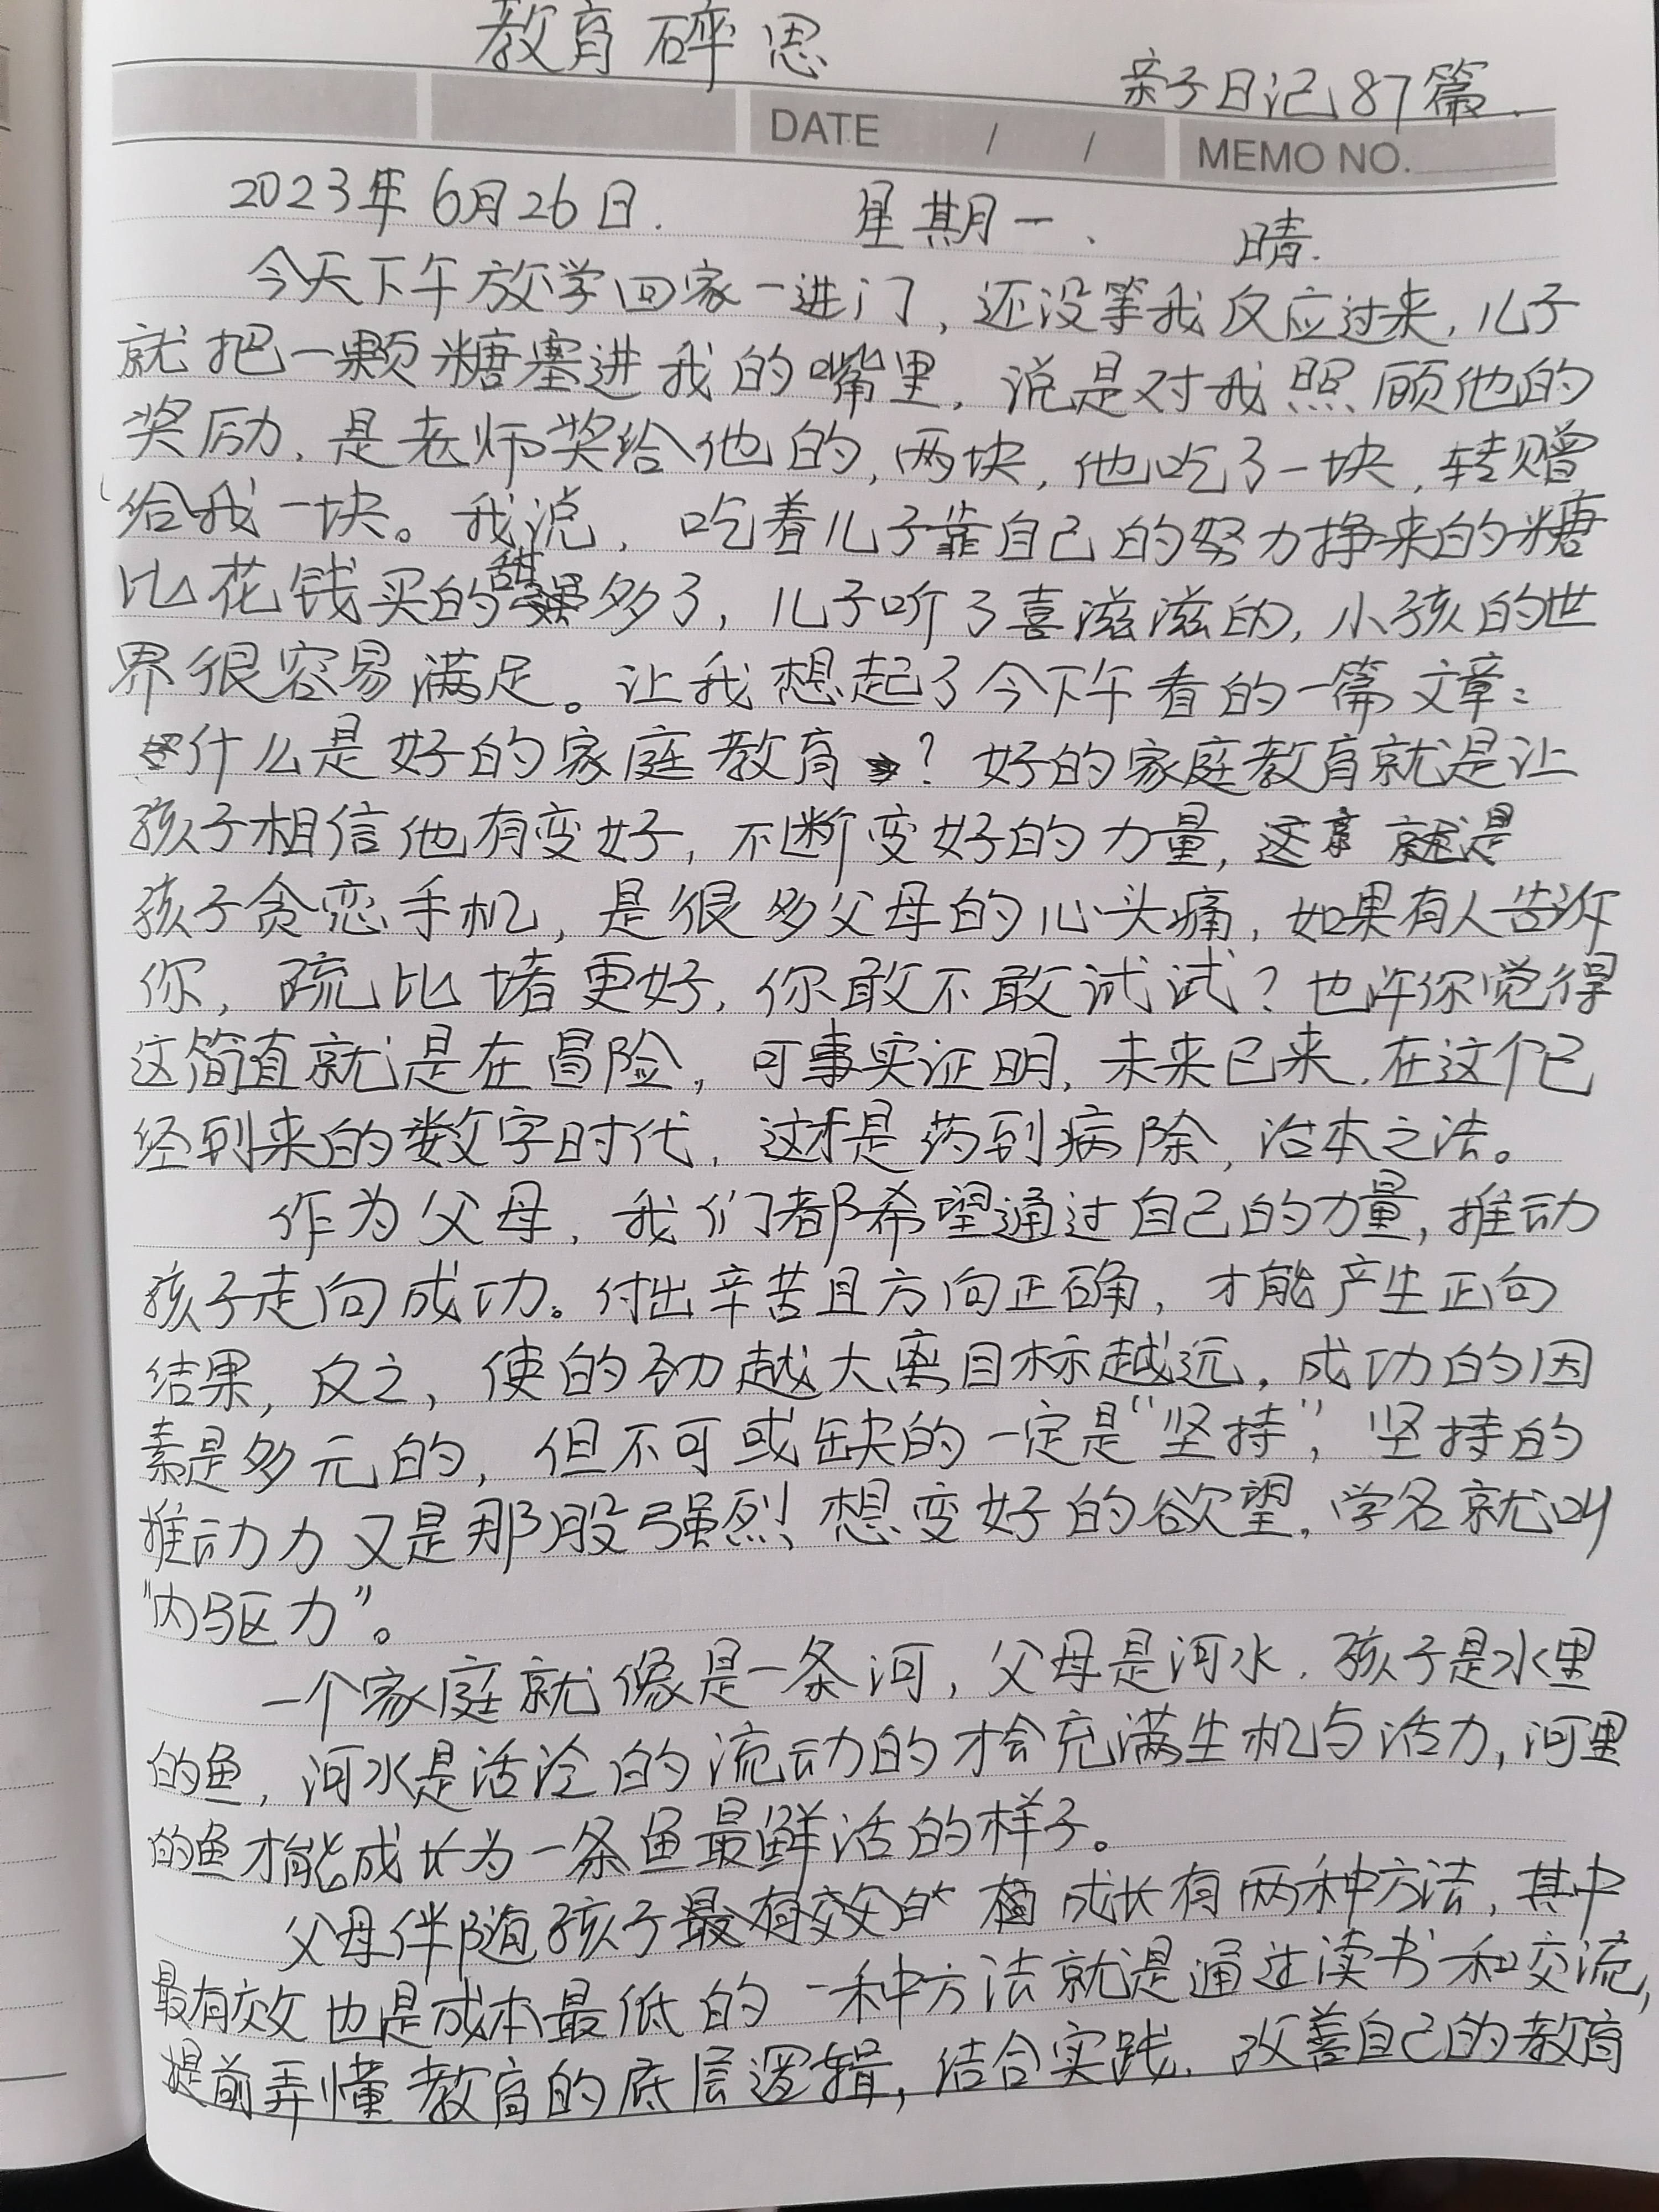 教育碎思
亲子日记87篇.
DATE / /
MEMO NO.
2023年6月26日. 星期一、 晴.
今天下午放学回家一进门,还没等我反应过来,儿子
就把一颗糖塞进我的嘴里,说是对我照顾他的
奖励,是老师奖给他的,两块,他吃了一块,转赠
给我一块。我说,吃着儿子靠自己的努力挣来的糖
比花钱买的甜多了,儿子听了喜滋滋的,小孩的世
界很容易满足。让我想起了今下午看的一篇文章:
什么是好的家庭教育?好的家庭教育就是让
孩子相信他有变好,不断变好的力量,这 就是
孩子贪恋手机,是很多父母的心头痛,如果有人告诉
你,疏比堵更好,你敢不敢试试?也许你觉得
这简直就是在冒险,可事实证明,未来已来,在这个已
经到来的数字时代,这才是药到病除,治本之法。
作为父母,我们都希望通过自己的力量,推动
孩子走向成功。付出辛苦且方向正确,才能产生正向
结果,反之,使的劲越大离目标越远,成功的因
素是多元的,但不可或缺的一定是“坚持”,坚持的
推动力又是那股强烈想变好的欲望,学名就叫
“内驱力”。
一个家庭就像是一条河,父母是河水,孩子是水里
的鱼,河水是活泠的流动的才会充满生机与活力,河里
的鱼才能成长为一条鱼最鲜活的样子。
父母伴随孩子最有效的 成长有两种方法,其中
最有效也是成本最低的一种方法就是通过读书和交流,
提前弄懂教育的底层逻辑,结合实践,改善自己的教育